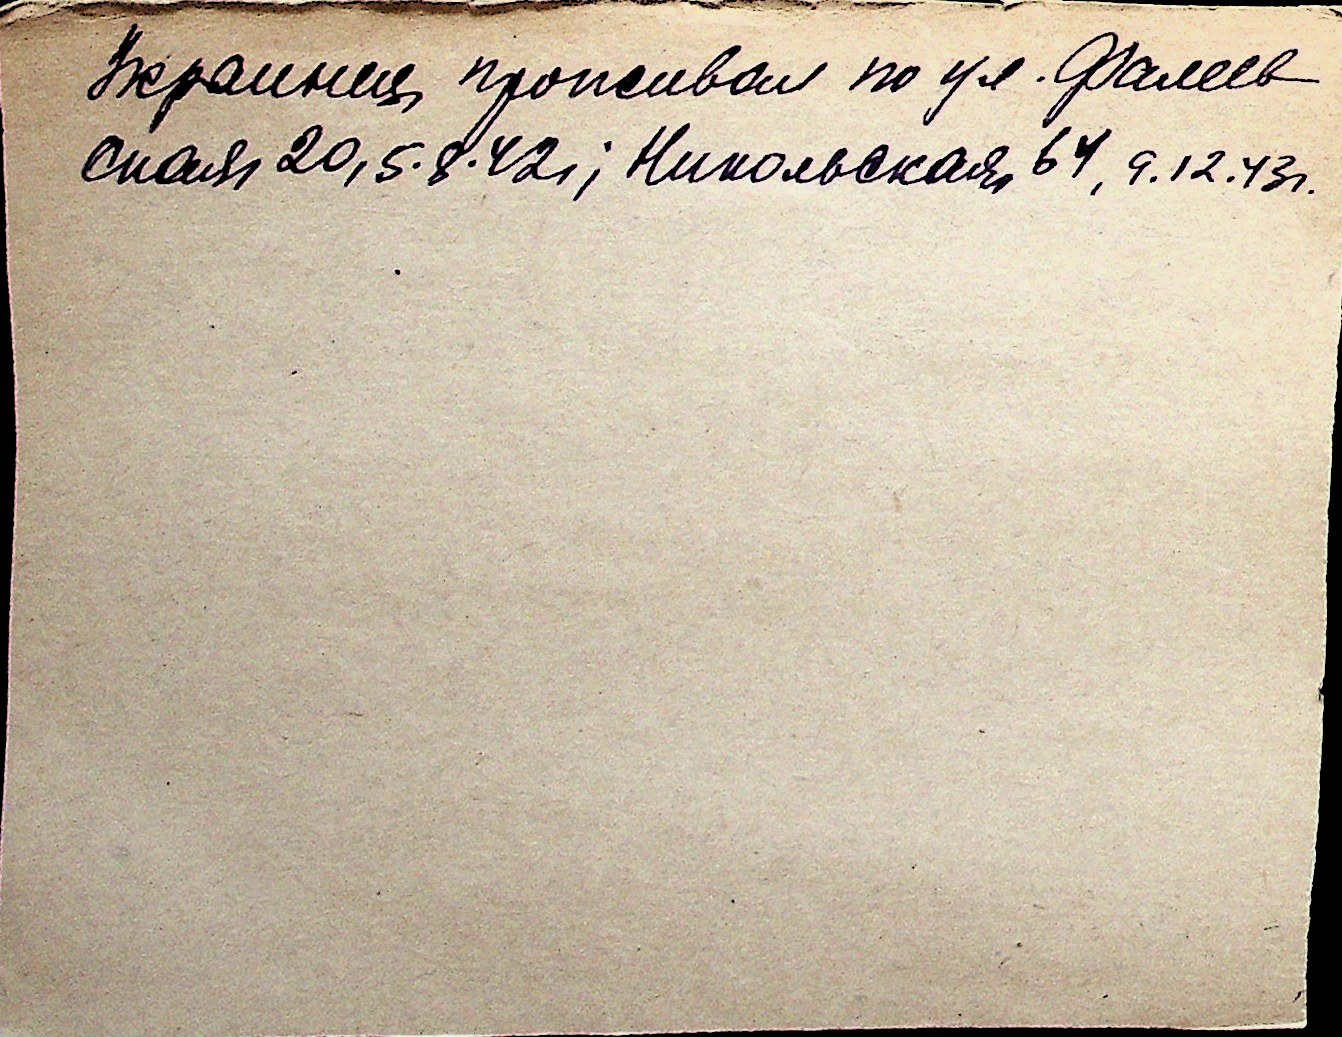 Украинец, проживал по ул. Фалеев
ская, 20, 5.8.42г; Никольская, 64, 9.12.43г.